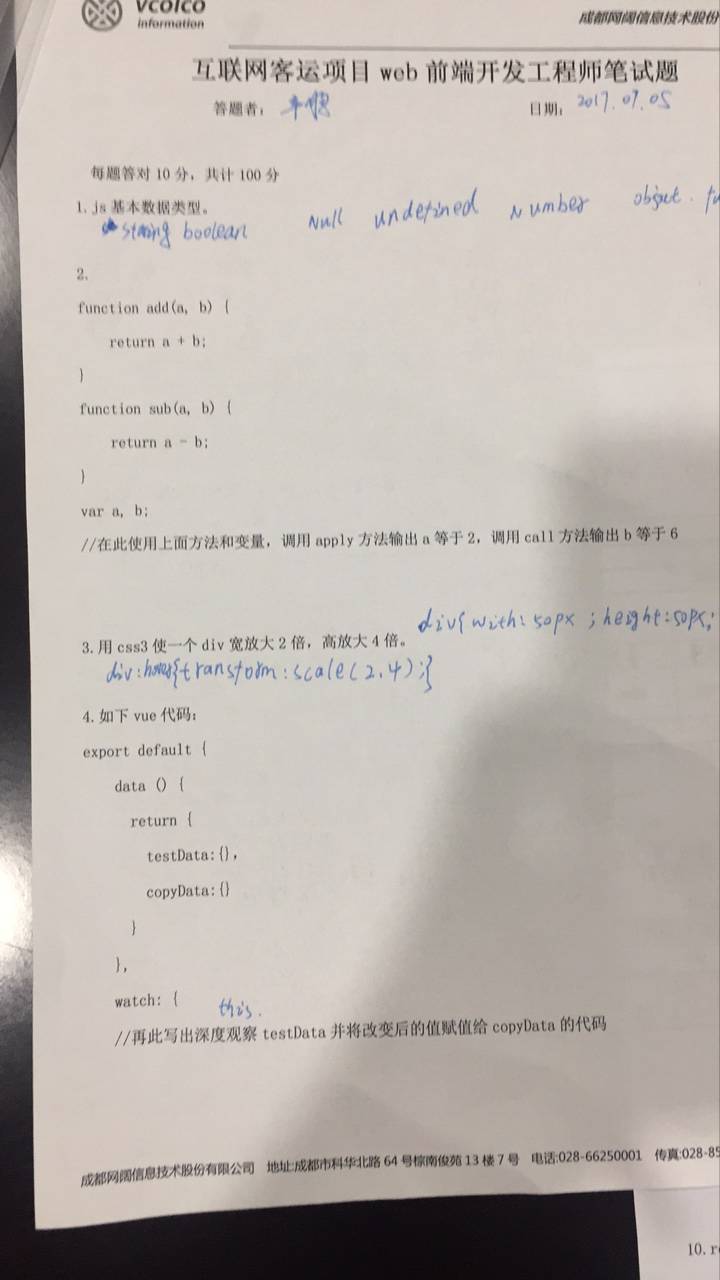 vcolco
information
成都网阔信息技术股份
互联网客运项目 web 前端开发工程师笔试题
答题者： 日期： 2017.07.05
每题答对 10 分，共计 100 分
1. js 基本数据类型。
string boolean Null undefined Number object.
2.
function add(a, b) {
return a + b;
}
function sub(a, b) {
return a - b;
}
var a, b;
//在此使用上面方法和变量，调用 apply 方法输出 a 等于 2，调用 call 方法输出 b 等于 6
3. 用 css3 使一个 div 宽放大 2 倍，高放大 4 倍。 div{with:50px ;height:50px;
div:hover{transform:scale(2.4);}
4. 如下 vue 代码：
export default {
data () {
return {
testData:{},
copyData:{}
}
},
watch: {
this.
//再此写出深度观察 testData 并将改变后的值赋值给 copyData 的代码
成都网阔信息技术股份有限公司 地址:成都市科华北路 64 号棕南俊苑 13 楼 7 号 电话:028-66250001 传真:028-85
10.